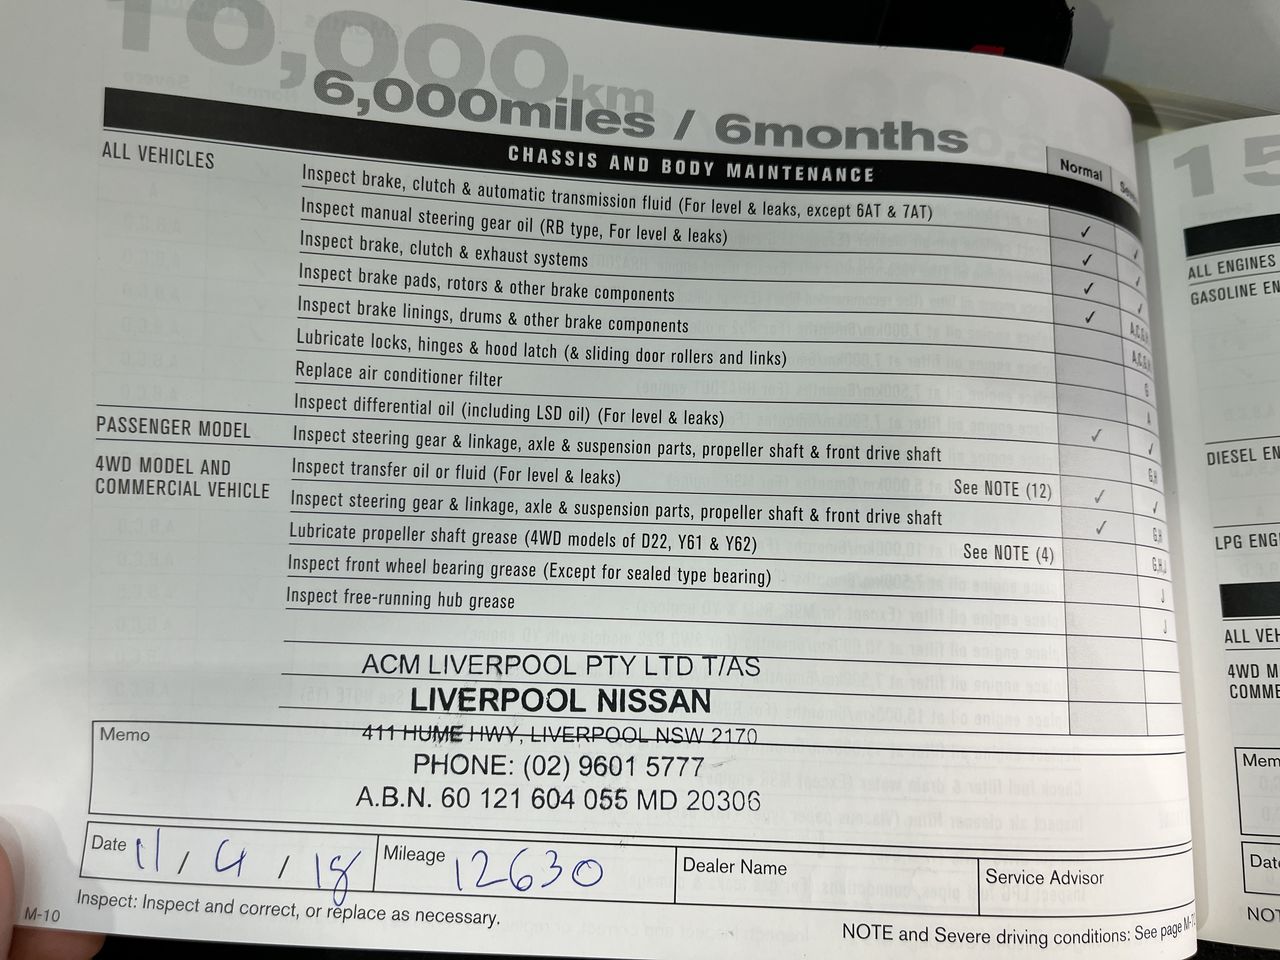 10,000km
6,000miles / 6months
CHASSIS AND BODY MAINTENANCE
Normal
ALL VEHICLES
Inspect brake, clutch & automatic transmission fluid (For level & leaks, except 6AT & 7AT)
Inspect manual steering gear oil (RB type, For level & leaks)
Inspect brake, clutch & exhaust systems
Inspect brake pads, rotors & other brake components
Inspect brake linings, drums & other brake components
Lubricate locks, hinges & hood latch (& sliding door rollers and links)
Replace air conditioner filter
Inspect differential oil (including LSD oil) (For level & leaks)
PASSENGER MODEL
Inspect steering gear & linkage, axle & suspension parts, propeller shaft & front drive shaft
4WD MODEL AND
COMMERCIAL VEHICLE
Inspect transfer oil or fluid (For level & leaks) See NOTE (12)
Inspect steering gear & linkage, axle & suspension parts, propeller shaft & front drive shaft
Lubricate propeller shaft grease (4WD models of D22, Y61 & Y62) See NOTE (4)
Inspect front wheel bearing grease (Except for sealed type bearing)
Inspect free-running hub grease
✓ ✓
✓ ✓
✓ ✓
✓
G
A
✓ ✓
G,H
✓ ✓
✓ G,H
G,H,J
J
J
ACM LIVERPOOL PTY LTD T/AS
LIVERPOOL NISSAN
411 HUME HWY, LIVERPOOL NSW 2170
PHONE: (02) 9601 5777
A.B.N. 60 121 604 055 MD 20306
Memo
Date 11 / 4 / 18 Mileage 12630 Dealer Name Service Advisor
Inspect: Inspect and correct, or replace as necessary.
M-10
NOTE and Severe driving conditions: See page
15
ALL ENGINES
GASOLINE EN
DIESEL EN
LPG ENG
ALL VEH
4WD M
COMME
Mem
Date
NOT